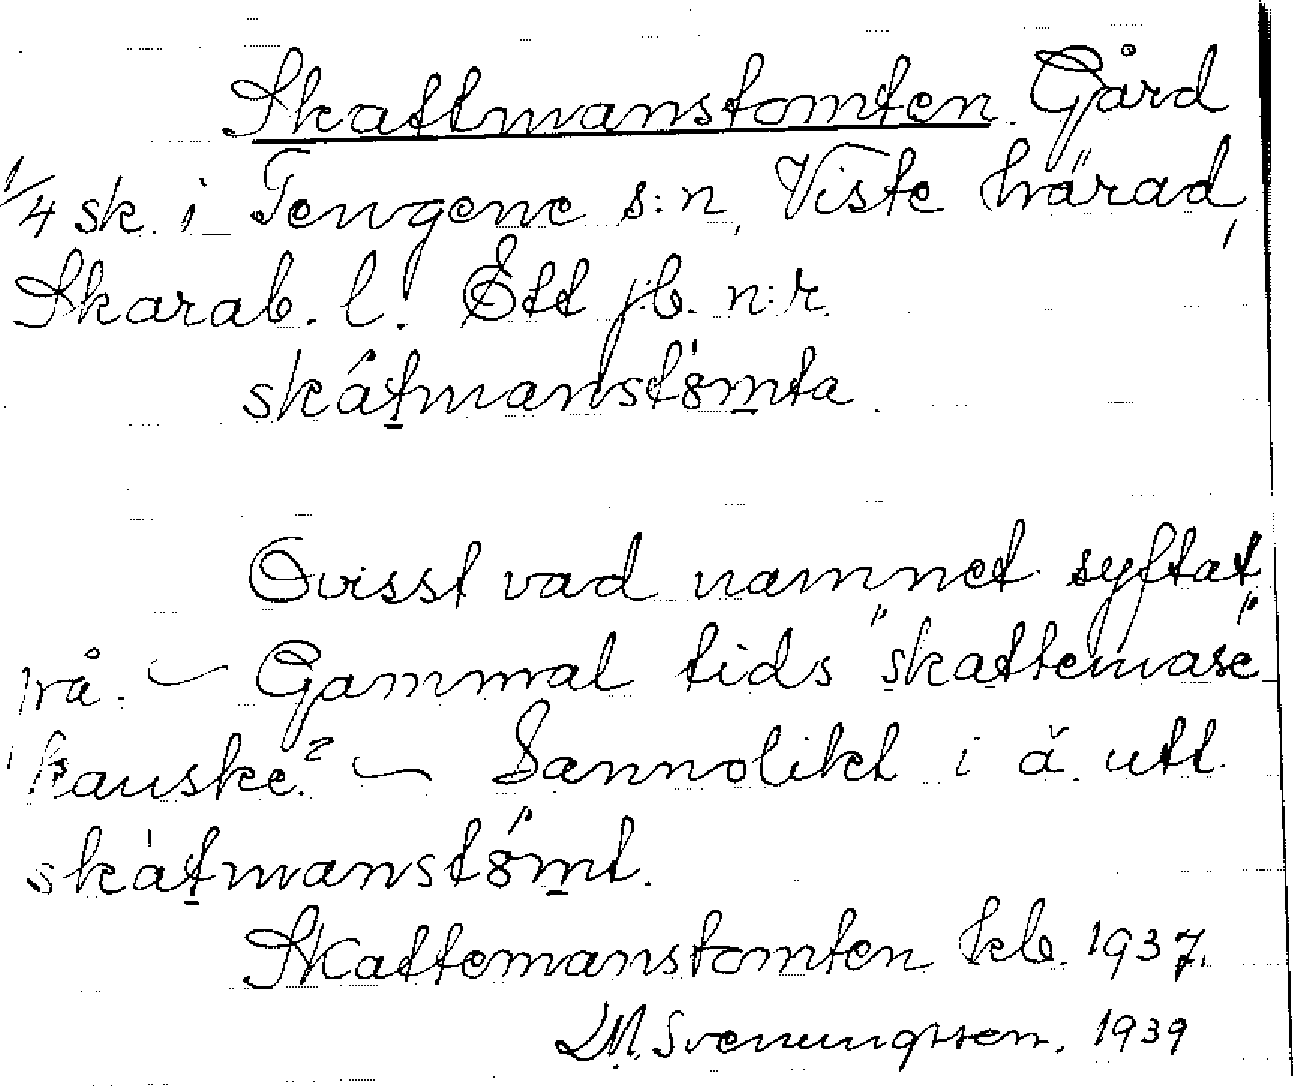 Skattmanstomten. Gård
1/4 sk. i Tengene s:n, Viste härad,
Skarab. l. Ett jb. n:r.
skátmanstömta.
Ovisst vad namnet syftat
på. — Gammal tids "skattemase"
kanske? — Sannolikt i ä. utt.
skàtmanstömt.
Skattemanstomten kb. 1937.
LM. Svenungsson. 1939